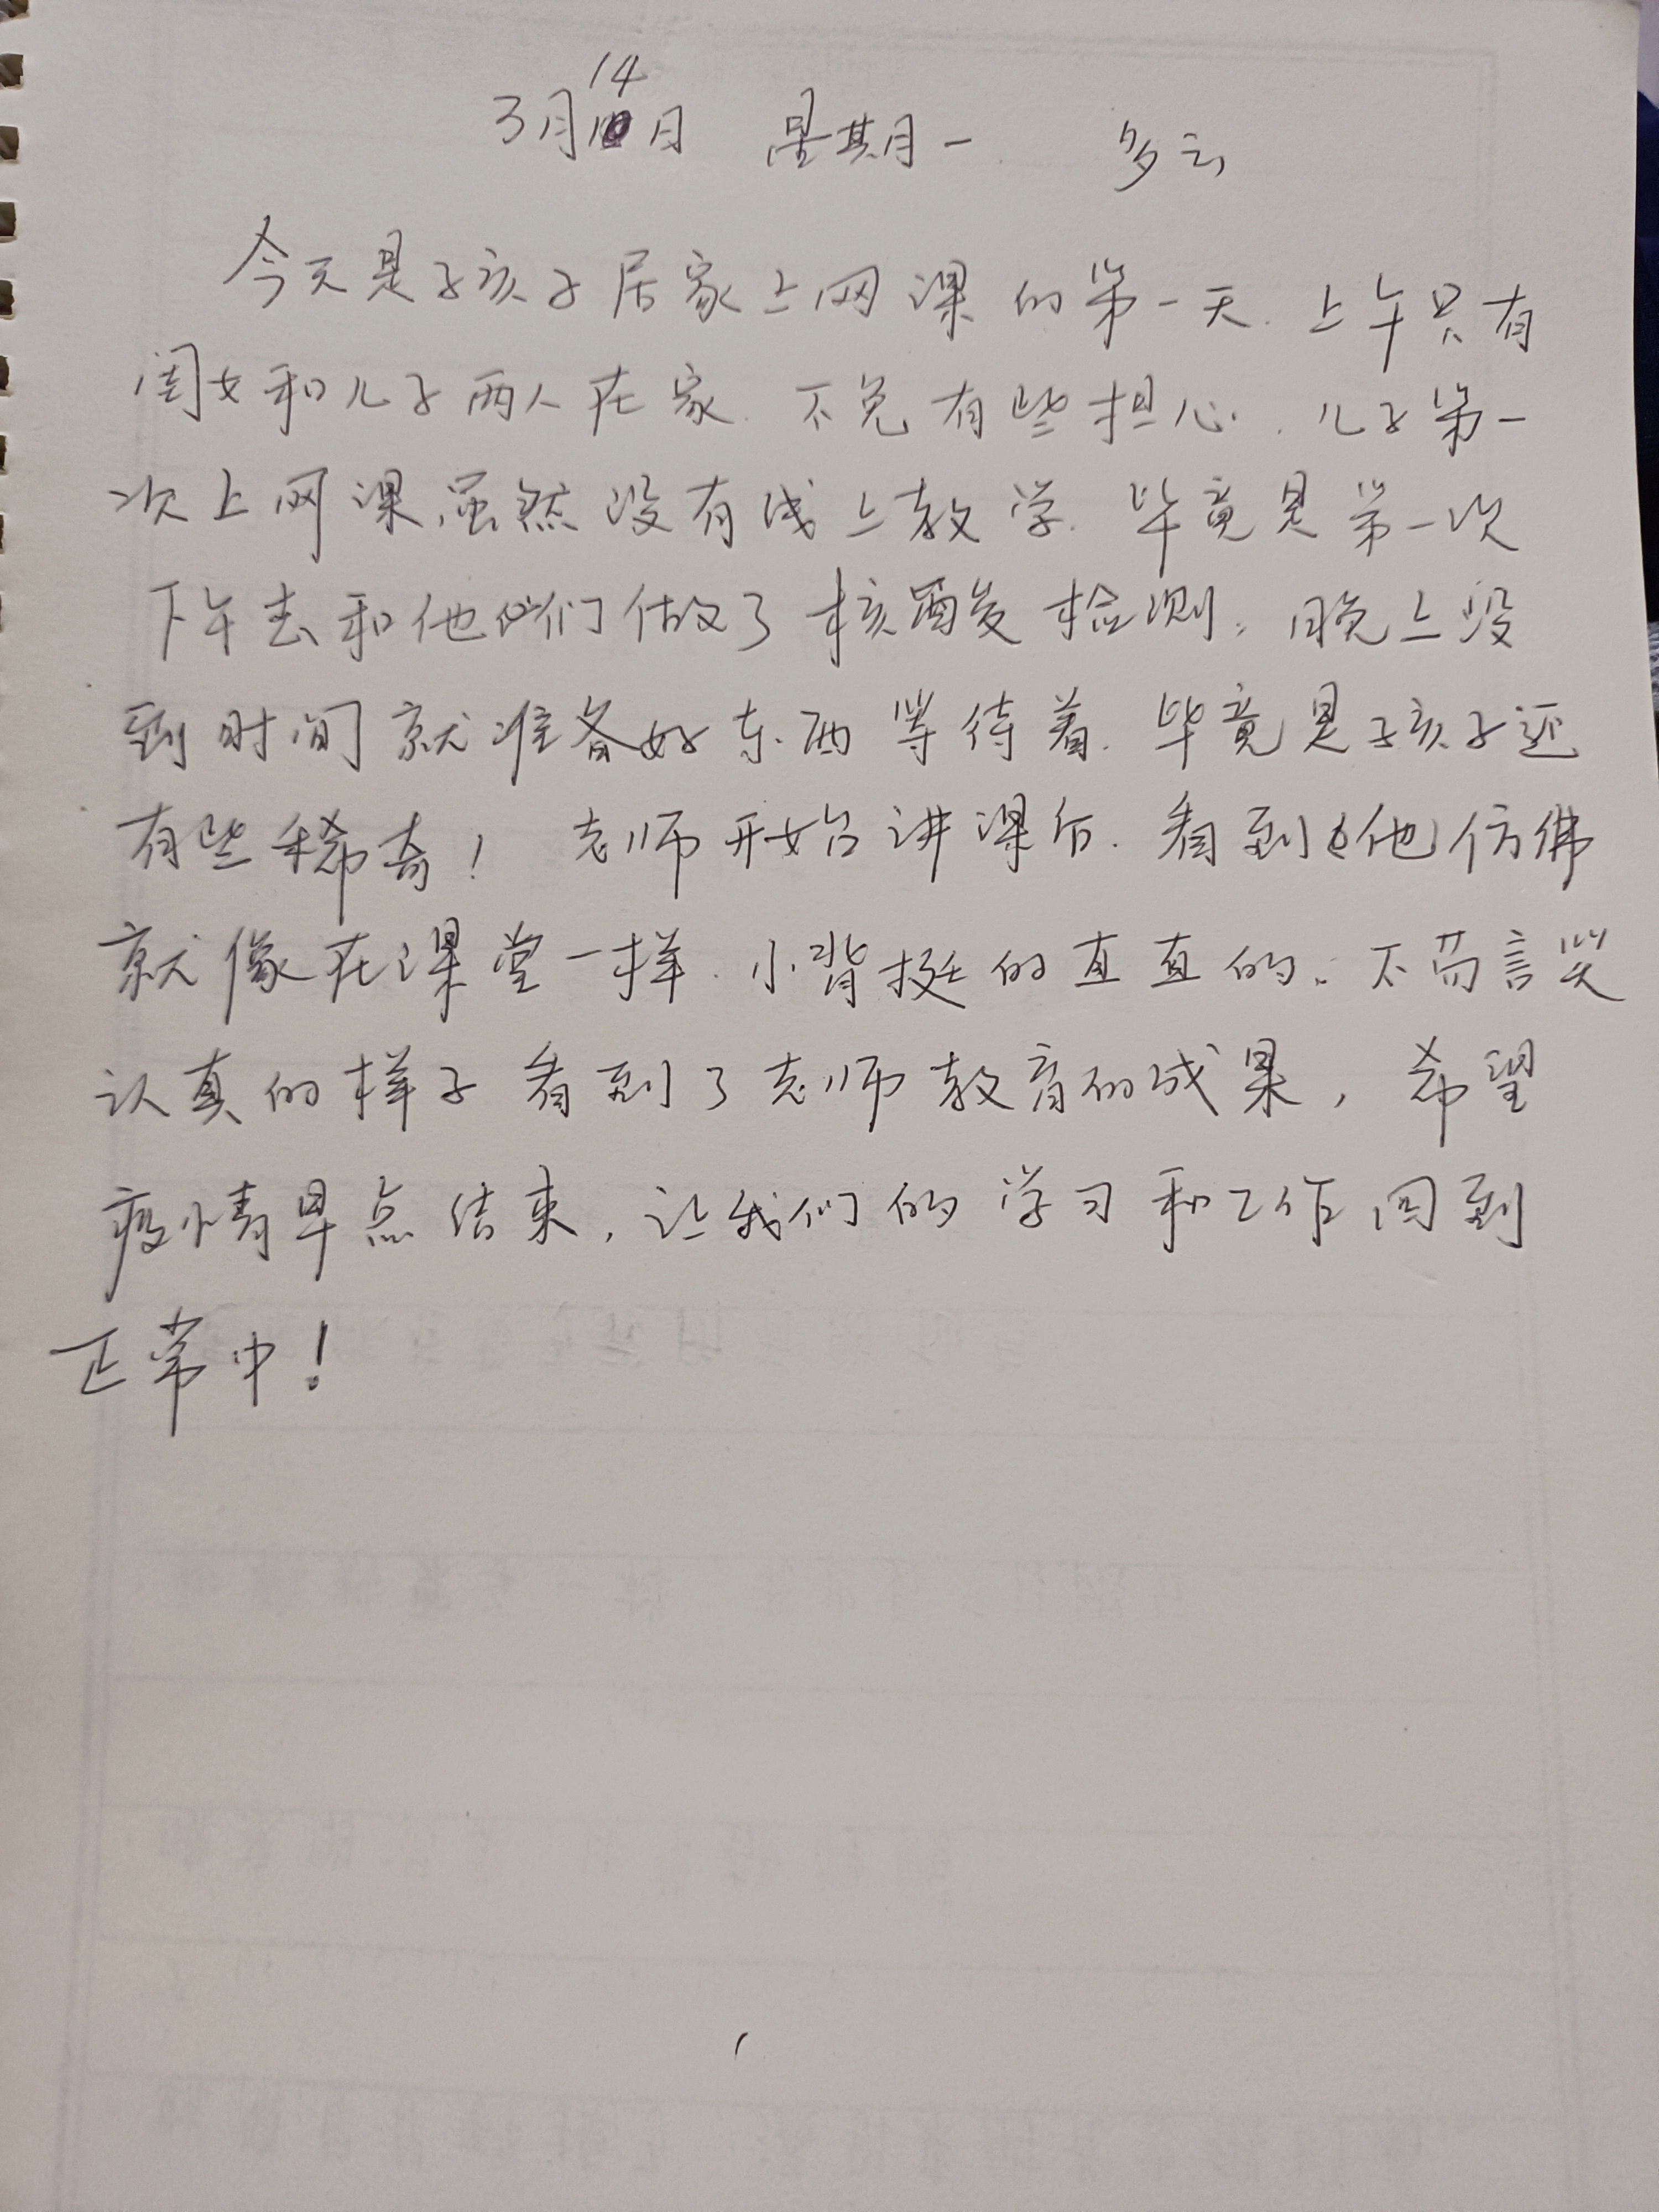 3月14日 星期一 多云
今天是孩子居家上网课的第一天.上午只有
闺女和儿子两人在家.不免有些担心.儿子第一
次上网课,虽然没有线上教学.毕竟是第一次
下午去和他们做了核酸检测,晚上没
到时间就准备好东西等待着.毕竟是孩子还
有些稀奇!老师开始讲课后.看到他仿佛
就像在课堂一样.小背挺的直直的.不苟言笑
认真的样子看到了老师教育的成果,希望
疫情早点结束,让我们的学习和工作回到
正常中!